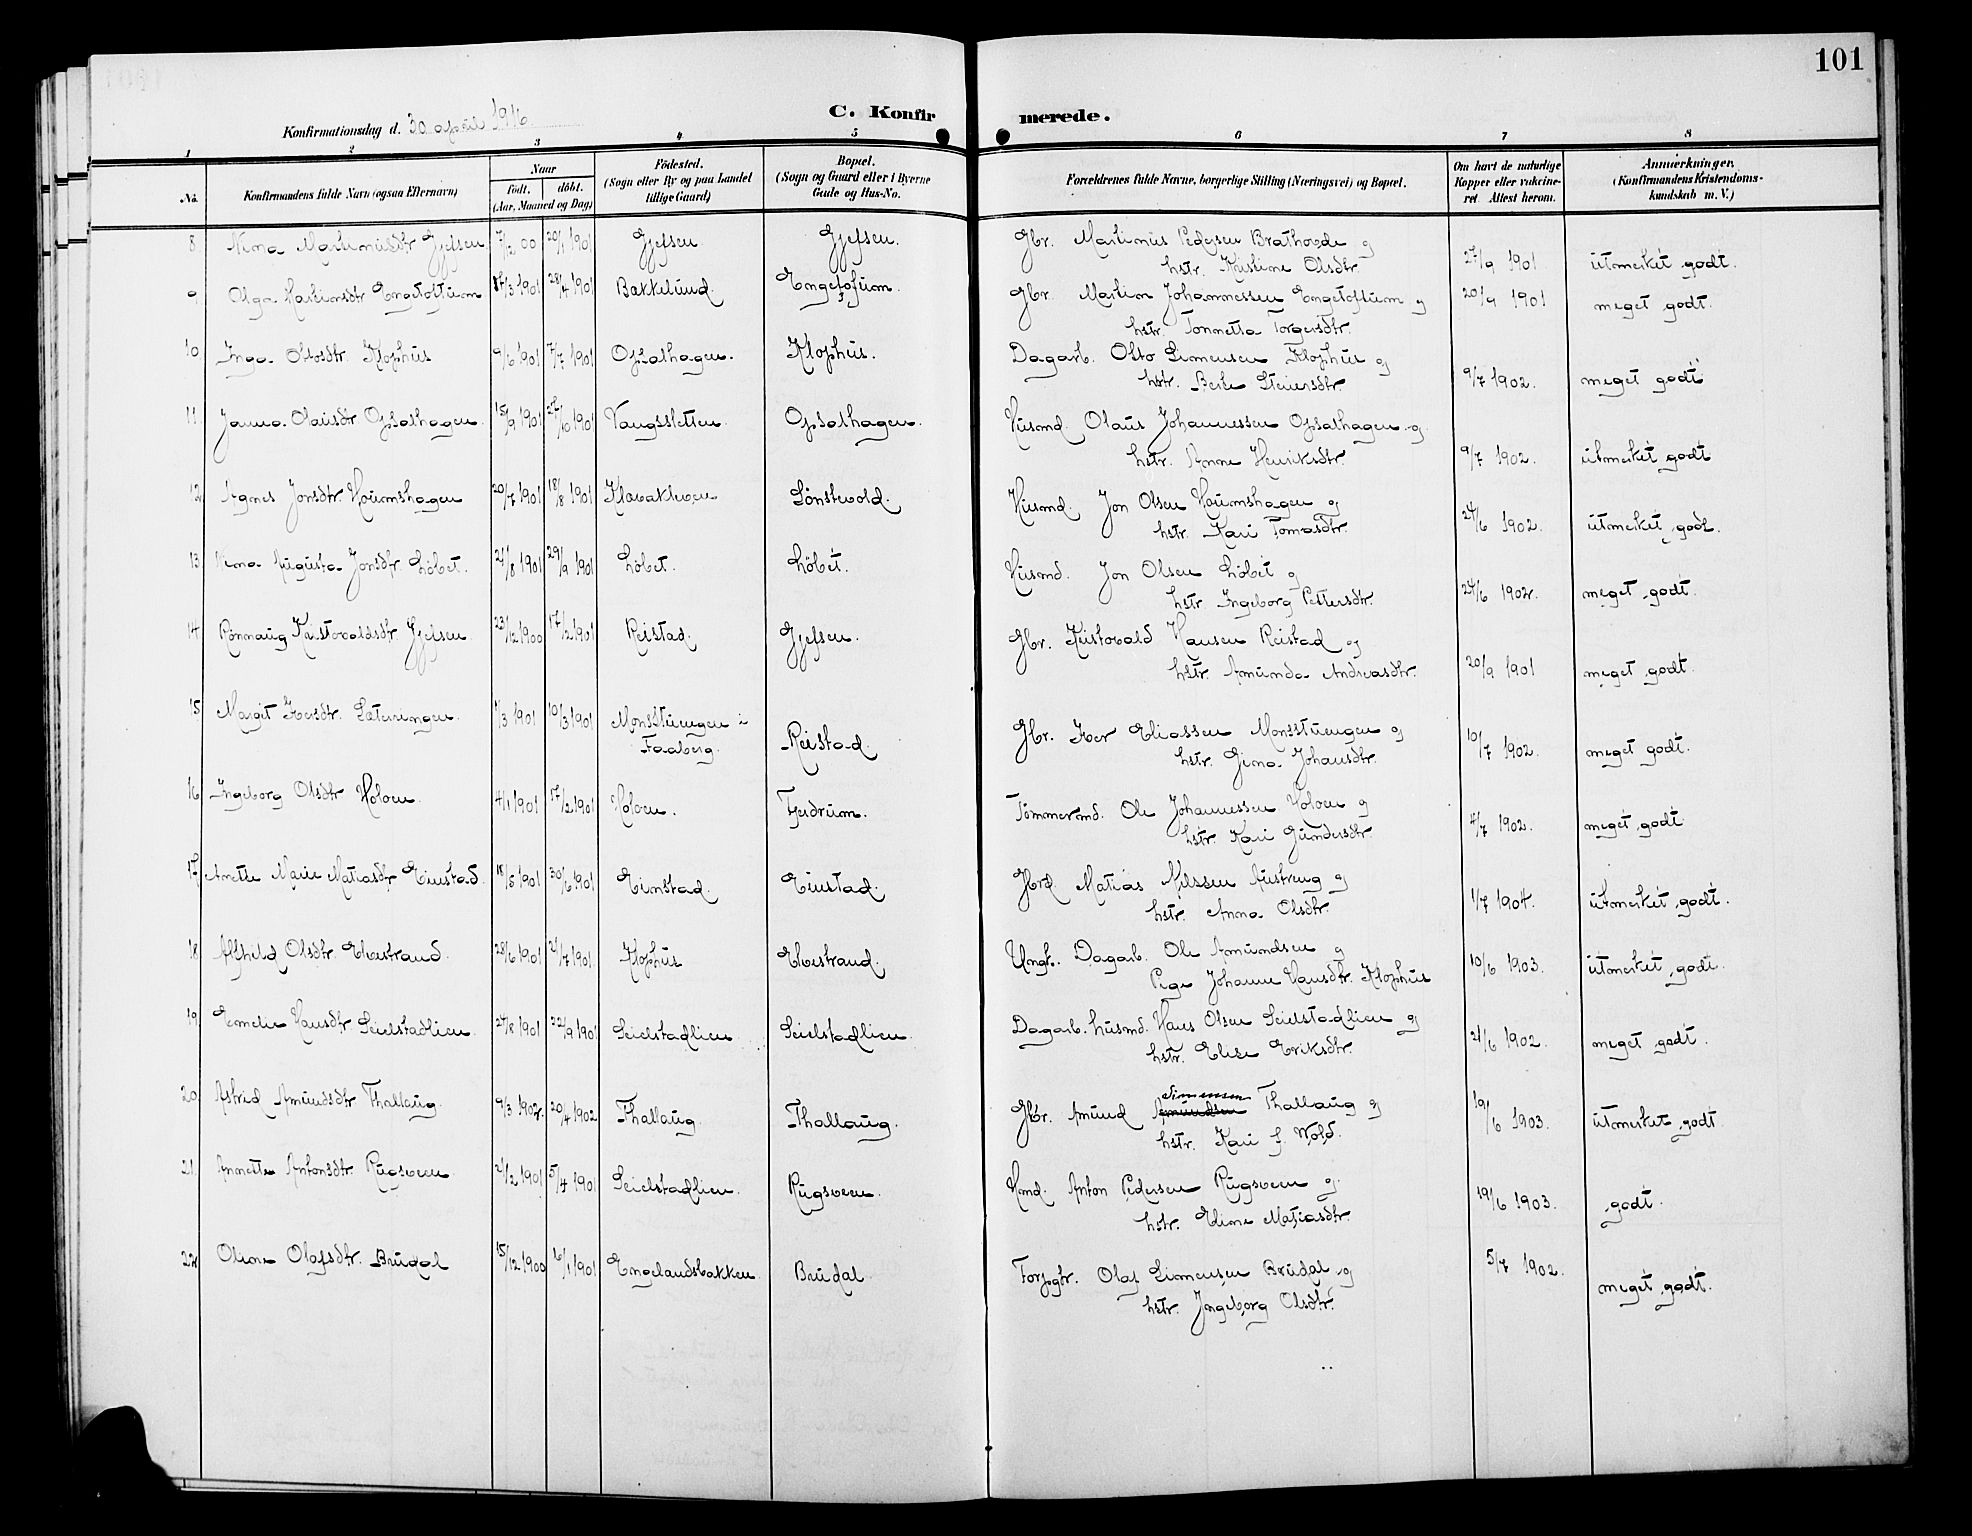 101
C. Konfirmerede.
Konfirmationsdag d. 30 april 1916
1 2 3 4 5 6 7 8
No. Konfirmandens fulde Navn (ogsaa Efternavn) Naar født. døbt. (Aar, Maaned og Dag) Fødested. (Sogn eller By og paa Landet tillige Gaard) Bopæl. (Sogn og Gaard eller i Byerne Gade og Hus-No. Forældrenes fulde Navne, borgerlige Stilling (Næringsvei) og Bopæl. Om havt de naturlige Kopper eller vakcineret. Attest herom. Anmærkninger. (Konfirmandens Kristendomskundskab m. V.)
8 Martinusdtr Gjefsen 7/2 00 20/1 1901 Gjefsen. Gjefsen. Gbr. Martinus Pedersen og
hstr. Kristine Olsdtr. 27/9 1901 utmerket godt.
9 Olga Martinsdtr Engetoftum 1901 28/4 1901 Bakkelund. Gbr. Martin Johannessen Engetoftum og
hstr. Tonnetta Torgersdtr. 20/9 1901 meget godt.
10 Inga Ottosdtr. Klophus 9/6 1901 7/7 1901 Opsalhagen. Klophus. Dagarb. Otto Simensen Klophus og
hstr. 9/7 1902. meget godt
11. Olausdtr Opsalhagen. 15/9 1901 27/10 1901 Vangssletten. Opsalhagen. Husmd. Olaus Johannessen Opsalhagen og
hstr. Anne Henriksdtr. 9/7 1902. utmerket godt
12 Agnes Jonsdtr Haumshagen 20/7 1901 18/8 1901 Lønstevold. Husmd. Jon Olsen Haumshagen og
hstr. Kari Tomasdtr. 24/6 1902. utmerket godt.
13 Augusta Jonsdtr Løbet. 21/8 1901 29/9 1901 Løbet. Løbet. Husmd. Jon Olsen Løbet og
hstr. Ingeborg Pettersdtr. 24/6 1902. meget godt.
14 Rønnaug Kristovaldsdtr. Gjefsen 23/12 1900 17/2 1901 Reistad. Gjefsen. Gbr. Kristovald Hansen Reistad og
hstr. Amunda Andreasdtr. 20/9 1901 meget godt.
15 Margit Iversdtr. 1/3 1901 10/3 1901 Monsstuengen i
Faaberg. Reistad. Gbr. Iver Eliassen Monsstuengen og
hstr. Gina Johansdtr. 10/7 1902. meget godt.
16 Ingeborg Olsdtr Holoen. 4/1 1901 17/2 1901 Holoen. Fjerdrum. Tømmermd. Ole Johannessen Holoen og
hstr. Kari Gundersdtr. 4/7 1902. meget godt
17 Anette Marie Matiasdtr Einstad. 18/5 1901 30/6 1901 Einstad. Einstad. Gbrd. Matias Nilssen og
hstr. Anna Olsdtr. 1/7 1904. utmerket godt.
18 Alfhild Olsdtr. Elvestrand. 28/6 1901 21/7 1901. Klophus Elvestrand. Ungk. Dagarb. Ole Amundsen og
Pige Johanne Hansdtr. Klophus 10/6 1903. utmerket godt.
19. Emelie Hansdtr Seielstadlien. 24/8 1901 22/9 1901 Seielstadlien Seielstadlien. Dagarb. husmd. Hans Olsen Seielstadlien og
hstr. Elise Eriksdtr. 21/6 1902. meget godt.
20 Astrid Amundsdtr Thallaug. 9/3 1902. 20/4 1902 Thallaug. Thallaug. Gbr. Amund Amundsen Simensen Thallaug og
hstr. Kari f. Wold. 19/6 1903. utmerket godt.
21. Annetta Antonsdtr. Rugsveen. 2/2 1901 5/4 1901 Seielstadlien. Rugsveen. Hmd. Anton Pedersen Rugsveen og
hstr. Eline Matiasdtr. 19/6 1903. godt.
22 Oline Olafsdtr. Brudal 15/12 1900 6/1 1901 Engelandsbakken. Brudal Forpgtr. Olaf Simensen Brudal og
hstr. Ingeborg Olsdtr. 5/7 1902. meget godt.